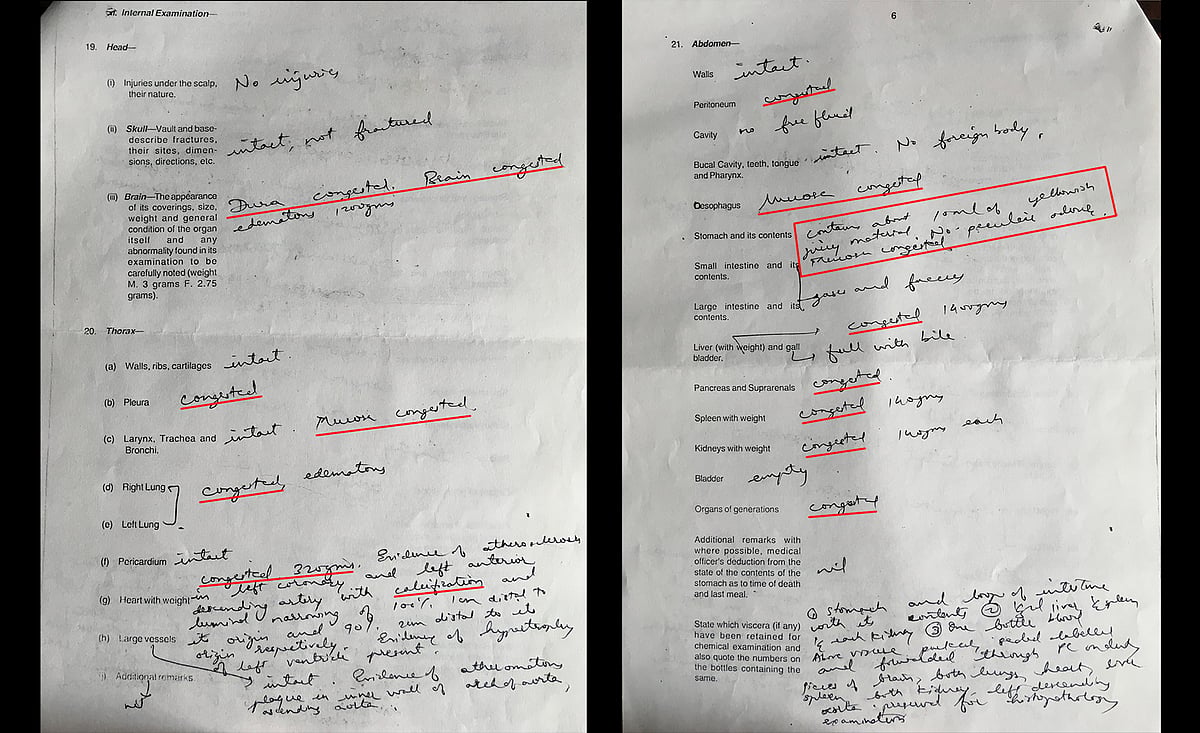 Internal Examination—
19. Head—
(i) Injuries under the scalp, their nature. No injuries
(ii) Skull—Vault and base-
describe fractures,
their sites, dimen-
sions, directions, etc.
intact, not fractured
(iii) Brain—The appearance
of its coverings, size,
weight and general
condition of the organ
itself and any
abnormality found in its
examination to be
carefully noted (weight
M. 3 grams F. 2.75
grams).
Dura congested. Brain congested
edematous 1200gms
20. Thorax—
(a) Walls, ribs, cartilages intact.
(b) Pleura congested
(c) Larynx, Trachea and
Bronchi.
intact. Mucosa congested.
(d) Right Lung
congested, edematous
(e) Left Lung
(f) Pericardium intact
(g) Heart with weight
congested 320gms. Evidence of atherosclerosis
in left coronary and left anterior
descending artery with calcification and
luminal narrowing of 100% 1cm distal to
its origin and 90% 2cm distal to its
origin respectively. Evidence of hypertrophy
of left ventricle present.
(h) Large vessels
intact. Evidence of atheromatous
plaque in inner wall of arch of aorta,
ascending aorta.
(i) Additional remarks.
nil
6
21. Abdomen—
Walls intact.
Peritoneum congested
Cavity no free fluid
Bucal Cavity, teeth, tongue
and Pharynx.
intact. No foreign body.
Oesophagus Mucosa congested
Stomach and its contents
contains about 10ml of yellowish
juicy material. No peculiar odour.
Mucosa congested.
Small intestine and its
contents.
Large intestine and its
contents.
gases and faeces
Liver (with weight) and gall
bladder.
congested 1400gms
full with bile.
Pancreas and Suprarenals congested.
Spleen with weight congested 140gms
Kidneys with weight congested 140gms each
Bladder empty
Organs of generations congested
Additional remarks with
where possible, medical
officer's deduction from the
state of the contents of the
stomach as to time of death
and last meal.
nil
State which viscera (if any)
have been retained for
chemical examination and
also quote the numbers on
the bottles containing the
same.
① Stomach and loop of intestine
with its contents ② liver, spleen
& each kidney ③ One bottle blood
Above viscera packed, sealed labelled
and forwarded through PC on duty
Pieces of brain, both lungs, heart, liver
spleen both kidney, left descending
aorta preserved for histopathology
examination